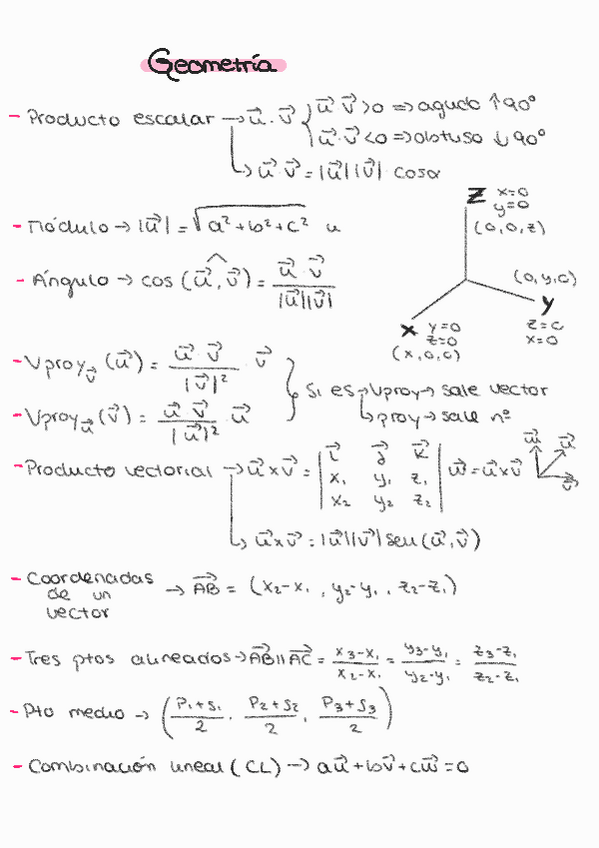 Geometría
- Producto escalar → u⃗ · v⃗ { u⃗ v⃗ > 0 ⇒ agudo ↑ 90°
u⃗ · v⃗ < 0 ⇒ obtuso ↓ 90°
↳ u⃗ · v⃗ = |u⃗| |v⃗| · cosα
- Módulo → |u⃗| = √(a² + b² + c²) u
- Ángulo → cos (u⃗, v⃗) = (u⃗ · v⃗) / (|u⃗||v⃗|)
Z x=0
y=0
(0,0,z)
(0,y,0)
Y
z=0
x=0
X y=0
z=0
(x,0,0)
- Vproy_v⃗ (u⃗) = (u⃗ · v⃗) / |v⃗|² · v⃗
- Vproy_u⃗ (v⃗) = (u⃗ · v⃗) / |u⃗|² u⃗
} Si es → Vproy → sale vector
↳ proy → sale nº
- Producto vectorial → u⃗ x v⃗ = | i⃗ j⃗ k⃗ |
| x₁ y₁ z₁ | w⃗ = u⃗ x v⃗
| x₂ y₂ z₂ |
w⃗ u⃗ v⃗
↳ u⃗ x v⃗ = |u⃗||v⃗| sen (u⃗, v⃗)
- Coordenadas
de un
vector → AB⃗ = (x₂-x₁, y₂-y₁, z₂-z₁)
- Tres ptos alineados → AB⃗ || AC⃗ = (x₃-x₁)/(x₂-x₁) = (y₃-y₁)/(y₂-y₁) = (z₃-z₁)/(z₂-z₁)
- Pto medio → ((P₁+S₁)/2 , (P₂+S₂)/2 , (P₃+S₃)/2)
- Combinación lineal (CL) → au⃗ + bv⃗ + cw⃗ = 0